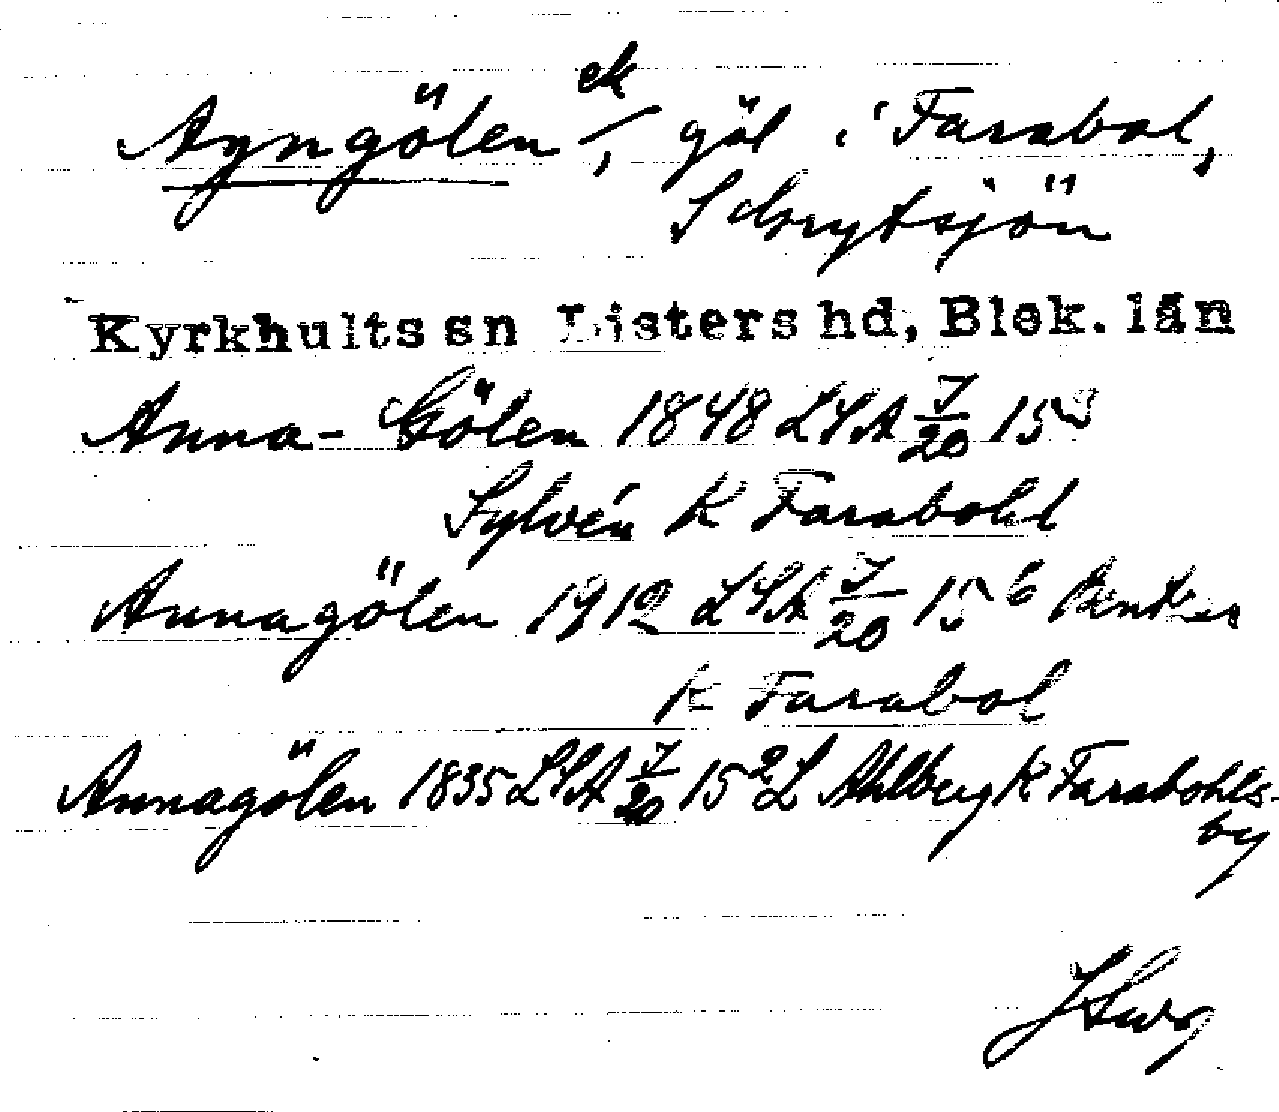 Agngölen ek, göl i Farabol,
S Grytsjön
Kyrkhults sn Listers hd, Blek. län
Anna-Gölen 1848 LSA 7/20 15 3
Sylvén K Farabohl
Annagölen 1912 LSA 7/20 15 6
K Farabol
Annagölen 1835 LSA 7/20 15 2 L Ahlberg K Farabohls-
by